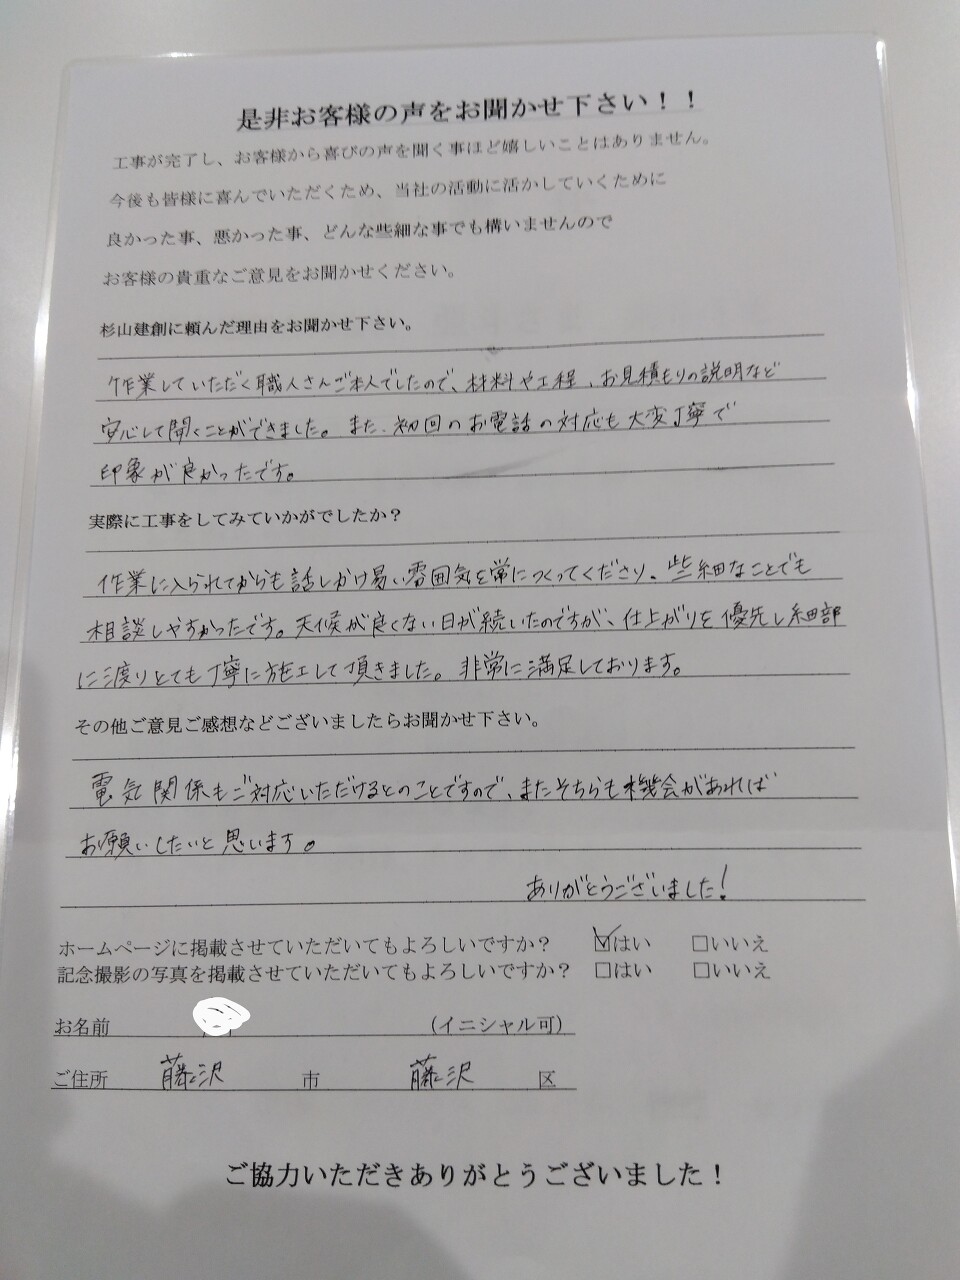 是非お客様の声をお聞かせ下さい！！
工事が完了し、お客様から喜びの声を聞く事ほど嬉しいことはありません。
今後も皆様に喜んでいただくため、当社の活動に活かしていくために
良かった事、悪かった事、どんな些細な事でも構いませんので
お客様の貴重なご意見をお聞かせください。
杉山建創に頼んだ理由をお聞かせ下さい。
作業していただく職人さんご本人でしたので、材料や工程、お見積もりの説明など
安心して聞くことができました。また、初回のお電話の対応も大変丁寧で
印象が良かったです。
実際に工事をしてみていかがでしたか？
作業に入られてからも話しかけ易い雰囲気を常につくってくださり、些細なことでも
相談しやすかったです。天候が良くない日が続いたのですが、仕上がりを優先し細部
に渡りとても丁寧に施工して頂きました。非常に満足しております。
その他ご意見ご感想などございましたらお聞かせ下さい。
電気関係もご対応いただけるとのことですので、またそちらも機会があれば
お願いしたいと思います。
ありがとうございました！
ホームページに掲載させていただいてもよろしいですか？ ☑はい □いいえ
記念撮影の写真を掲載させていただいてもよろしいですか？ □はい □いいえ
お名前 （イニシャル可）
ご住所 藤沢 市 藤沢 区
ご協力いただきありがとうございました！